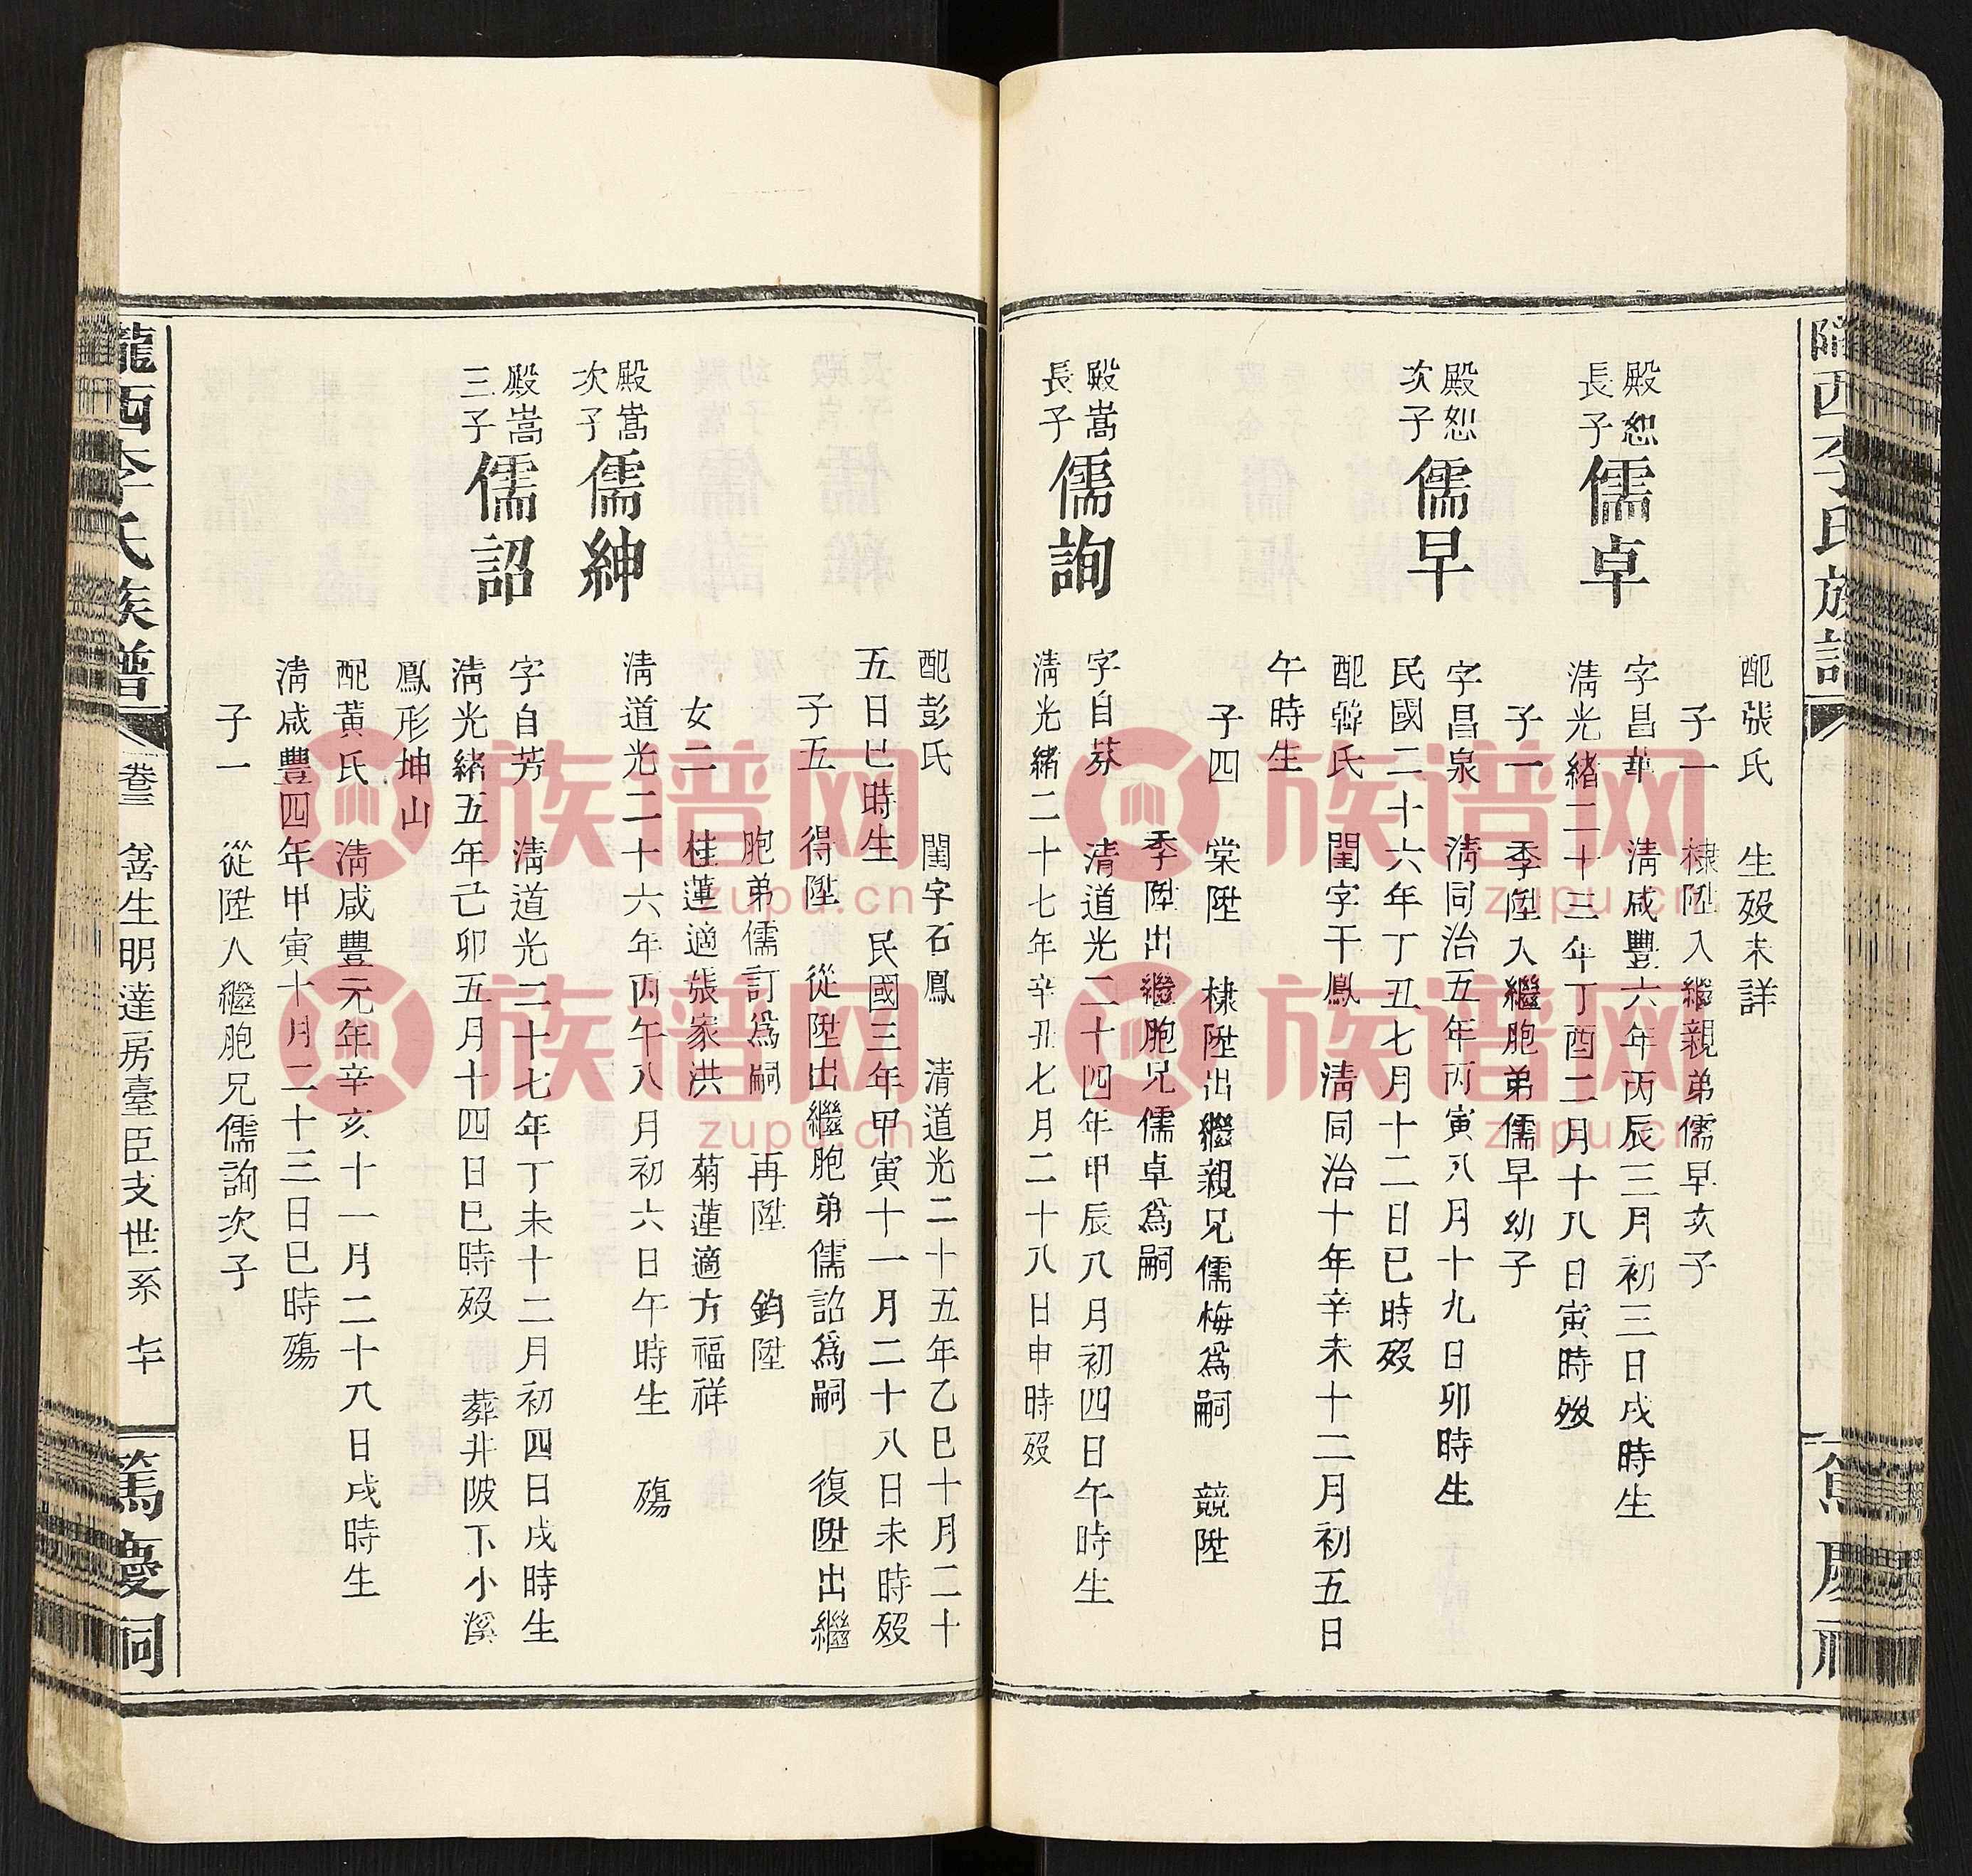 隴西李氏族譜
篤慶祠
配張氏 生歿未詳
子一 棣陞入繼親弟儒早亥子
殿恕長子儒卓
字昌華 清咸豐六年丙辰三月初三日戌時生
清光緒二十三年丁酉二月十八日寅時歿
子一 季陞入繼胞弟儒早幼子
殿恕次子儒早
字昌泉 清同治五年丙寅八月十九日卯時生
民國二十六年丁丑七月十二日巳時歿
配韓氏 閨字干鳳 清同治十年辛未十二月初五日
午時生
子四 棠陞 棣陞出繼親兄儒梅為嗣 競陞
季陞出繼胞兄儒卓為嗣
殿嵩長子儒詢
字自芬 清道光二十四年甲辰八月初四日午時生
清光緒二十七年辛丑七月二十八日申時歿
配彭氏 閨字石鳳 清道光二十五年乙巳十月二十
五日巳時生 民國三年甲寅十一月二十八日未時歿
子五 得陞 從陞出繼胞弟儒詔為嗣 復陞出繼
胞弟儒訂為嗣 再陞 鈞陞
女二 桂蓮適張家洪 菊蓮適方福祥
殿嵩次子儒紳
清道光二十六年丙午八月初六日午時生 殤
殿嵩三子儒詔
字自芳 清道光二十七年丁未十二月初四日戌時生
清光緒五年己卯五月十四日巳時歿 葬井陂下小溪
鳳形坤山
配黃氏 清咸豐元年辛亥十一月二十八日戌時生
清咸豐四年甲寅十月二十三日巳時殤
子一 從陞入繼胞兄儒詢次子
隴西李氏族譜
卷三 善生明達房臺臣支世系 七十
篤慶祠
族谱网
zupu.cn
族谱网
zupu.cn
族谱网
zupu.cn
族谱网
zupu.cn